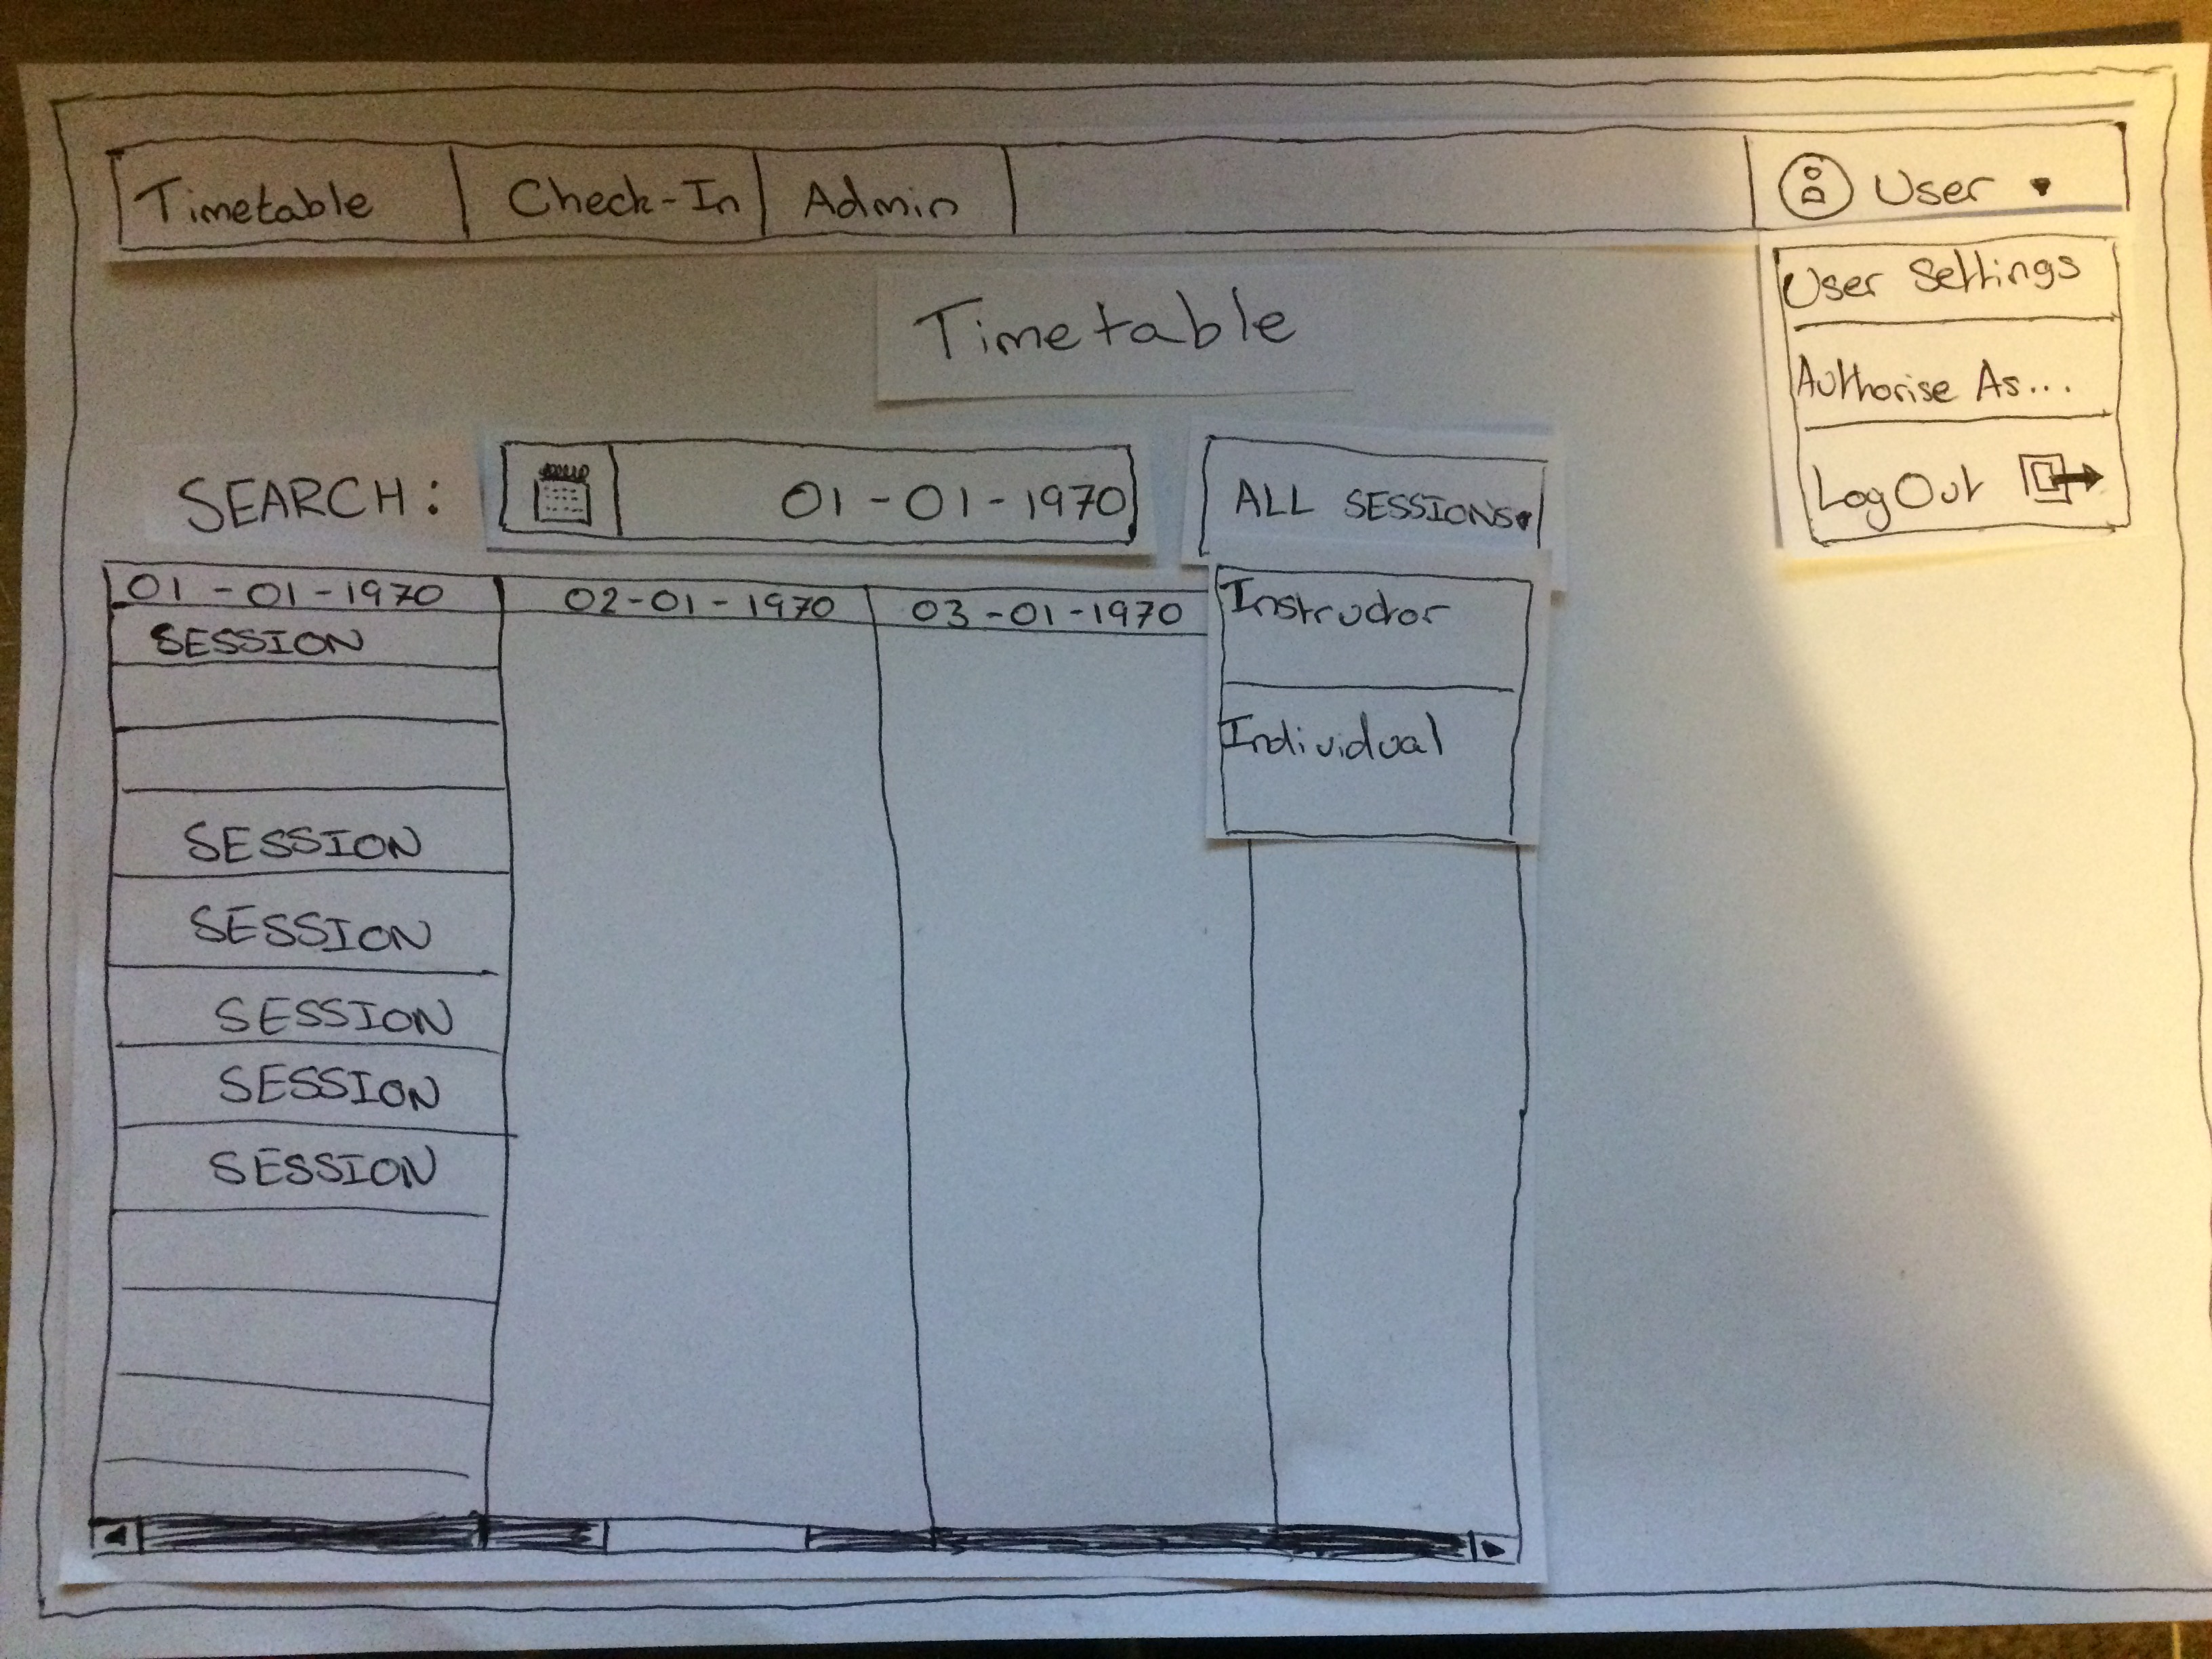 Timetable Check-In Admin User
User Settings
Authorise As...
Log Out
Timetable
SEARCH: 01-01-1970 ALL SESSIONS
Instructor
Individual
01-01-1970 02-01-1970 03-01-1970
SESSION
SESSION
SESSION
SESSION
SESSION
SESSION